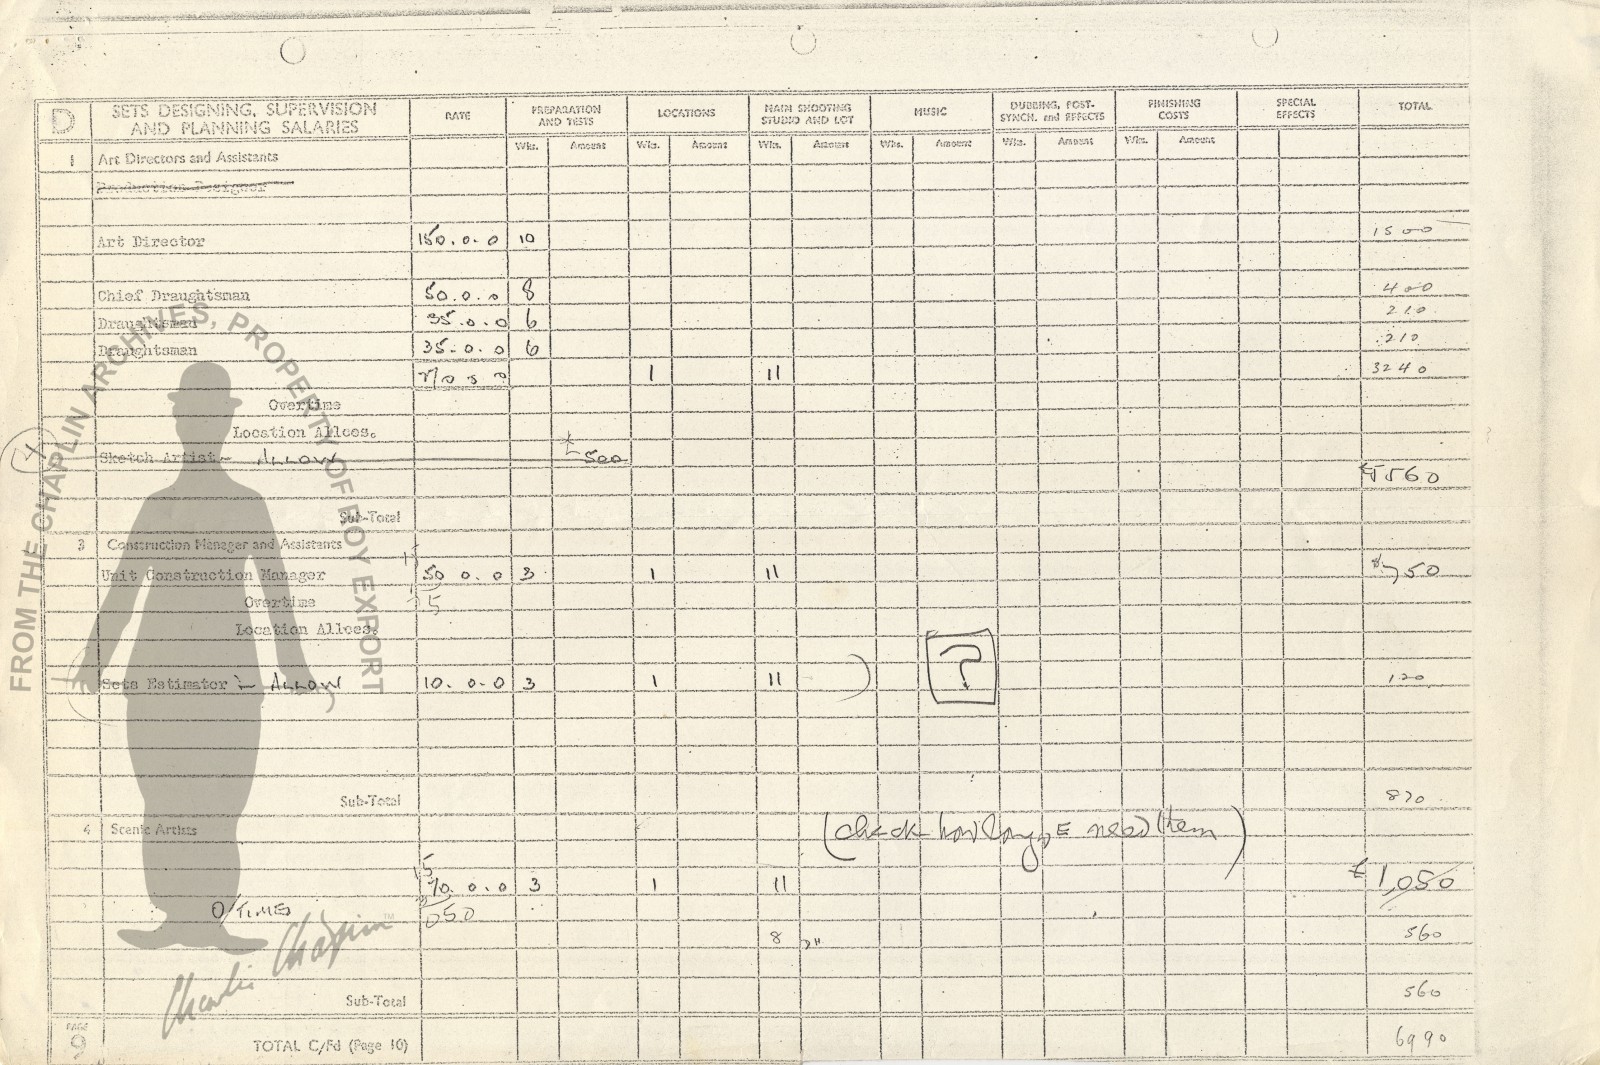 D SETS DESIGNING, SUPERVISION AND PLANNING SALARIES RATE PREPARATION AND TESTS LOCATIONS MAIN SHOOTING STUDIO AND LOT MUSIC DUBBING, POST-SYNCH. and EFFECTS FINISHING COSTS SPECIAL EFFECTS TOTAL
Wks. Amount Wks. Amount Wks. Amount Wks. Amount Wks. Amount Wks. Amount
1 Art Directors and Assistants
Production Designer
Art Director 150.0.0 10 1500
Chief Draughtsman 50.0.0 8 400
Draughtsman 35.0.0 6 210
Draughtsman 35.0.0 6 210
1 11 3240
Overtime
Location Allces.
Sketch Artist - ALLOW £500
5560
Sub-Total
3 Construction Manager and Assistants
Unit Construction Manager 50 0.0 3 1 11 750
Overtime 75
Location Allces.
?
Sets Estimator - ALLOW 10.0.0 3 1 11 120
Sub-Total 870
4 Scenic Artists
(check how long we need them)
70.0.0 3 1 11 £1,050
O/TIMES
8 560
Sub-Total 560
PAGE 9 TOTAL C/Fd (Page 10) 6990
FROM THE CHAPLIN ARCHIVES, PROPERTY OF ROY EXPORT
Charlie Chaplin™